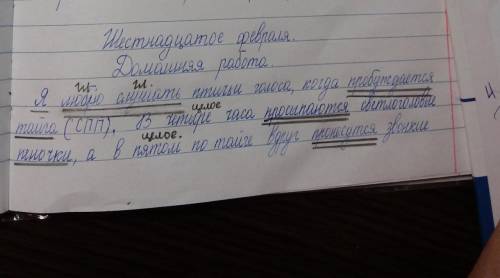 Шестнадцатое февраля.
Домашняя работа.
гл. гл.
Я люблю слушать птичьи голоса, когда пробуждается
тайга (СПП). В четыре часа просыпаются светлоголовые
целое
целое.
пеночки, а в пятом по тайге вдруг проносятся звонкие